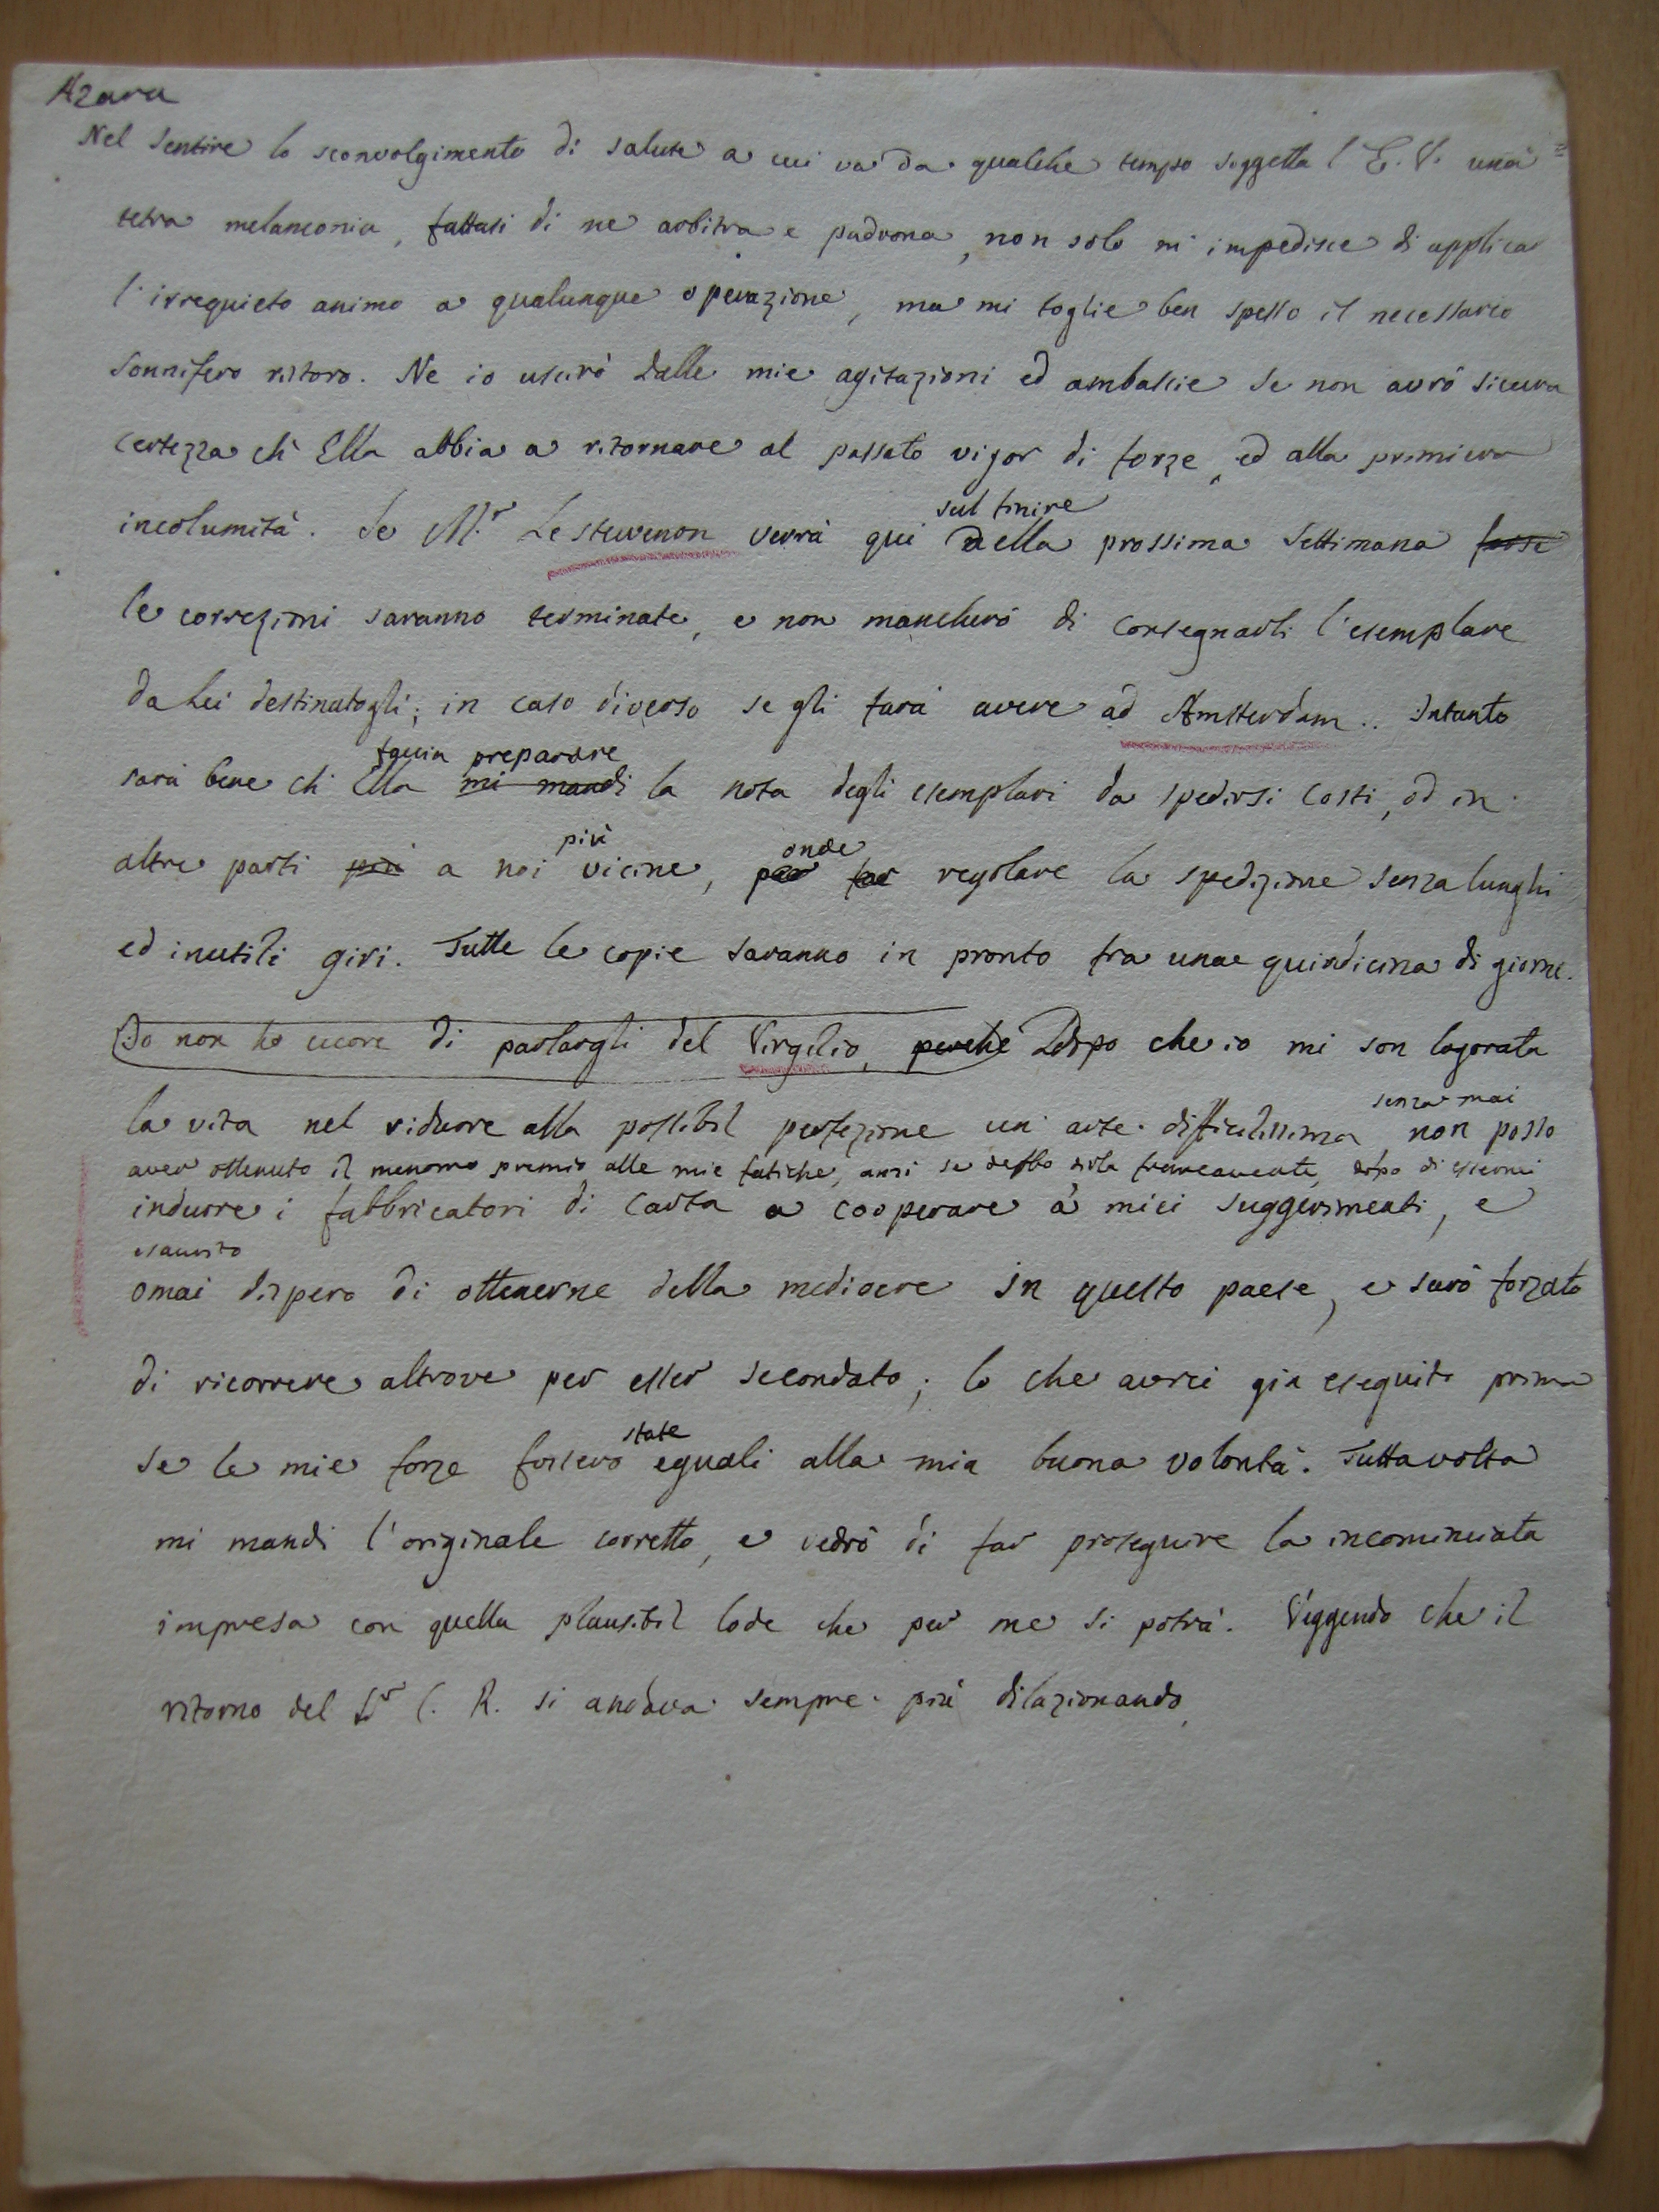 Azara
Nel sentire lo sconvolgimento di salute a cui va da qualche tempo soggetta l'E. V. una
tetra melanconia, fattasi di me arbitra e padrona, non solo m'impedisce di applicar
l'irrequieto animo a qualunque operazione, ma mi toglie ben spesso il necessario
sonnifero ristoro. Ne io uscirò dalle mie agitazioni ed ambascie se non avrò sicura
certezza ch'Ella abbia a ritornare al passato vigor di forze, ed alla primiera
sul finire
incolumità. Se M.r Lestevenon verrà qui della prossima settimana forse
le correzioni saranno terminate, e non mancherò di consegnarli l'esemplare
da Lei destinatogli; in caso diverso se gli farà avere ad Amsterdam. Intanto
faccia preparare
sarà bene ch'Ella mi mandi la nota degli esemplari da spedirsi costì, od in
più onde
altre parti più a noi vicine, per far regolare la spedizione senza lunghi
ed inutili giri. Tutte le copie saranno in pronto fra una quindicina di giorni.
Io non ho cuore di parlargli del Virgilio, perchè Dopo che io mi son logorata
senza mai
la vita nel ridurre alla possibil perfezione un'arte difficilissima non posso
aver ottenuto il menomo premio alle mie fatiche, anzi se debbo dirla francamente, dopo di essermi
indurre i fabbricatori di carta a cooperare a' miei suggerimenti, e
esaurito
omai dispero di ottenerne della mediocre in questo paese, e sarò forzato
di ricorrere altrove per esser secondato; lo che avrei già eseguito prima
state
se le mie forze fossero eguali alla mia buona volontà. Tuttavolta
mi mandi l'originale corretto, e vedrò di far proseguire la incominciata
impresa con quella plausibil lode che per me si potrà. Veggendo che il
ritorno del S.r C. R. si andava sempre più dilazionando,